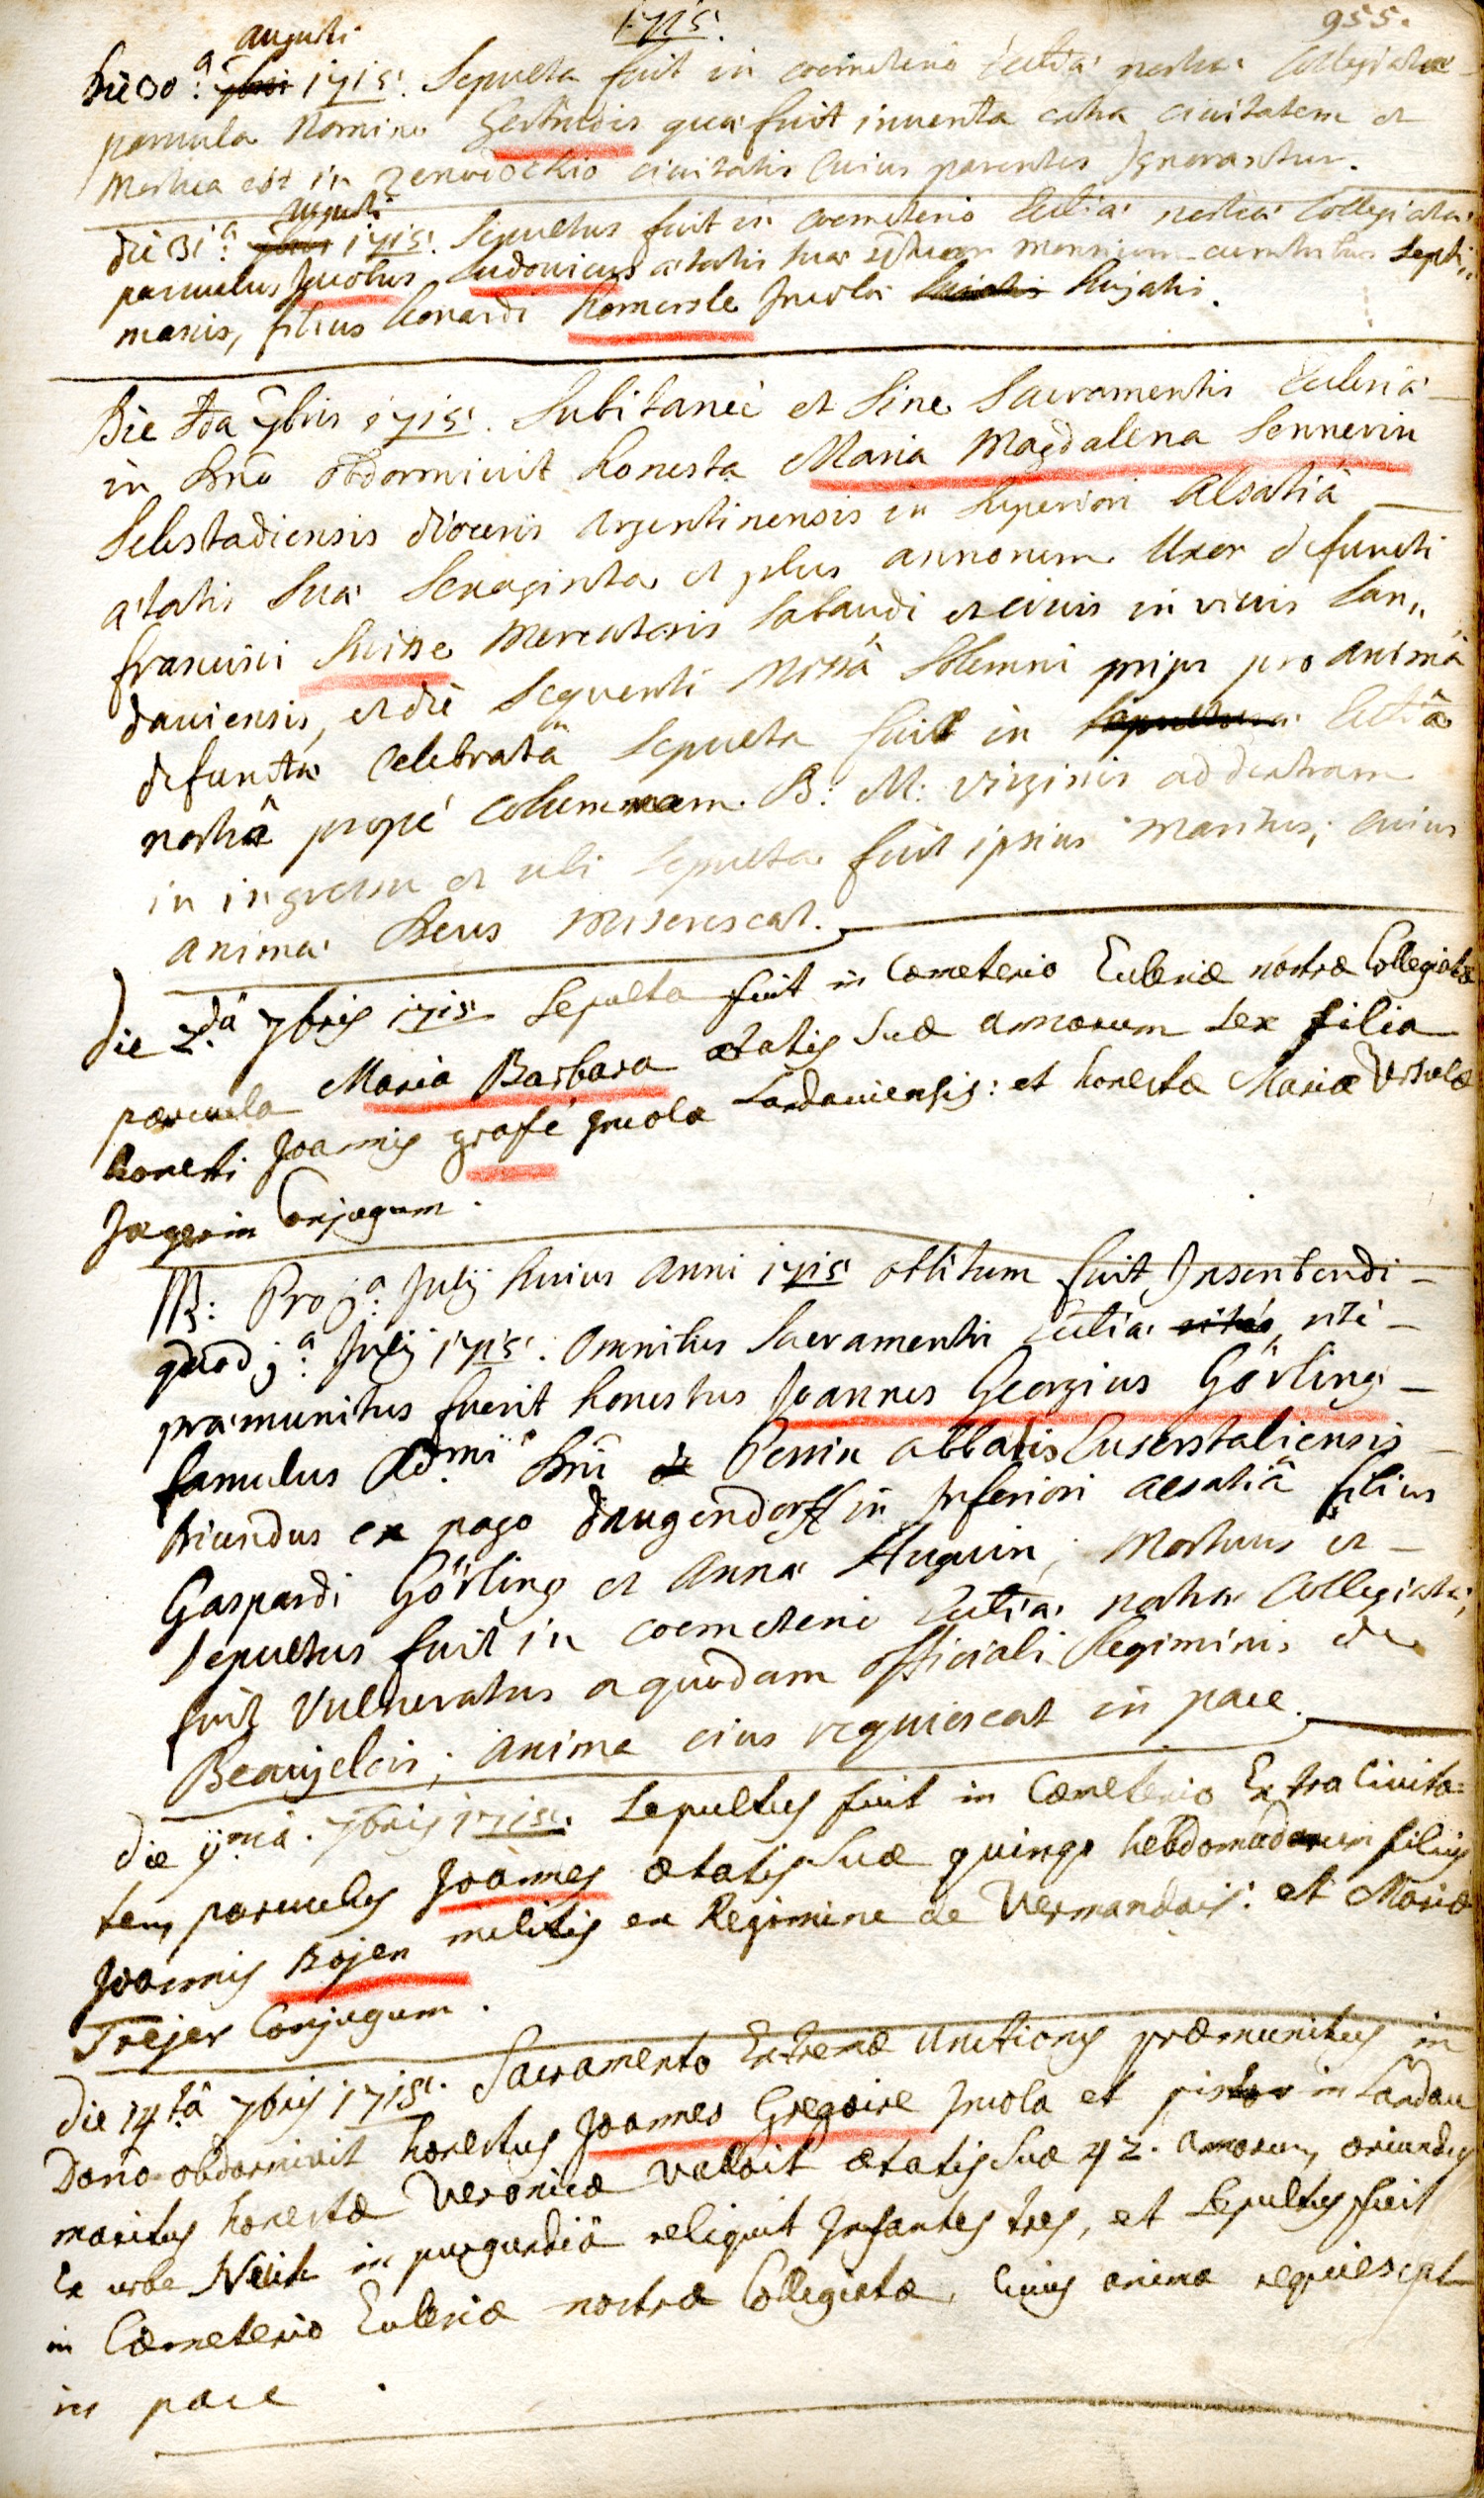 1715. 955.
Augusti
Die 30.a 7bri 1715. Sepulta fuit in coemeterio Ecclia nostra Collegiata
parvula Nomine Gertrudis qua fuit inventa extra civitatem et
Mortua est in Zenodochio civitatis cuius parentes Ignorantur.
Augusti
die 31.a 7bris 1715. Sepultus fuit in coemeterio Ecclia nostra Collegiata
parvulus Jacobus Ludovicus atatis sua mensium cum tribus Septi„
manis, filius Leonardi Homersle Incola hujatis.
Die 7bris 1715. Subitanei et Sine Sacramentis Ecclesia
in Dno obdormivit honesta Maria Magdalena Sennerin
Selestadiensis diocesis Argentinensis in Superiori Alsatiâ
atatis Sua Sexaginta et plus annorum Uxor defuncti
francisci Suisse Mercatoris Sabaudi et civis in vicis Lan„
daviensis, et die Sequenti Missâ Solemni prius pro animâ
defuncta Celebratâ Sepulta fuit in Ecclîâ
nostrâ propè Columnam B: M: Virginis ad dextram
in ingressu et ubi Sepultus fuit ipsius Maritus, cuius
anima Deus Miserescat.
die 2.dâ 7bris 1715 Sepulta fuit in Cœmeterio Ecclesiæ nostræ Collegiatæ
parvula Maria Barbara ætatis Suæ annorum Sex filia
honesti Joannis grafé Incolæ Landaviensis: et honestæ Mariæ Ursulæ
Jægerin Conjugum.
NB: Pro j.a Julij huius Anni 1715 oblitum fuit Inscribendi
quod j.a Julij 1715. Omnibus Sacramentis Ecclia ritè
pramunitus fuerit honestus Joannes Georgius Görling
famulus Admi Dni Perrin abbatis Eusserstaliensis
oriundus ex pago daugendorff in Inferiori Alsatiâ filius
Gaspardi Görling et Anna Huguin, Mortuus et
Sepultus fuit in coemeterio Ecclia nostra Collegiata,
fuit Vulneratus a quodam officiali Regiminis de
Beaujelois; anima eius requiescat in pace.
die ijma. 7bris 1715. Sepultus fuit in Cœmeterio Extra Civita=
tem, parvulus Joannes ætatis Suæ quinqe hebdomadarum filius
Joannis Bojen militis ex Regimine de Vermandois: et Mariæ
Trejer Conjugum.
Die 14.tâ 7bris 1715. Sacramento Extremæ Unctionis præmunitus in
Dono obdormivit honestus Joannes Gregoire Incola et pistor in Landau
maritus honestæ Veronicæ Valloit ætatis Suæ 42. annorum, oriundus
Ex urbe in purgundiâ reliquit Infantes tres, et Sepultus fuit
in Cœmeterio Ecclesiæ nostræ Collegiatæ, Cuius anima requiescat
in pace.